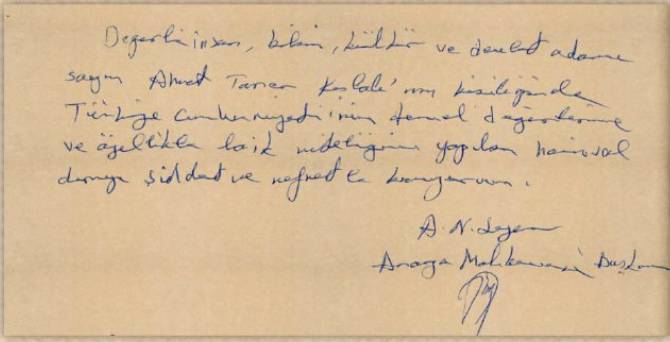 Değerli insan, bilim, kültür ve devlet adamı
sayın Ahmet Taner Kışlalı'nın kişiliğinde
Türkiye Cumhuriyeti'nin temel değerlerine
ve özellikle laik niteliğine yapılan
şiddet ve nefretle kınıyorum.
A. N. Sezer
Anayasa Mahkemesi Başkanı